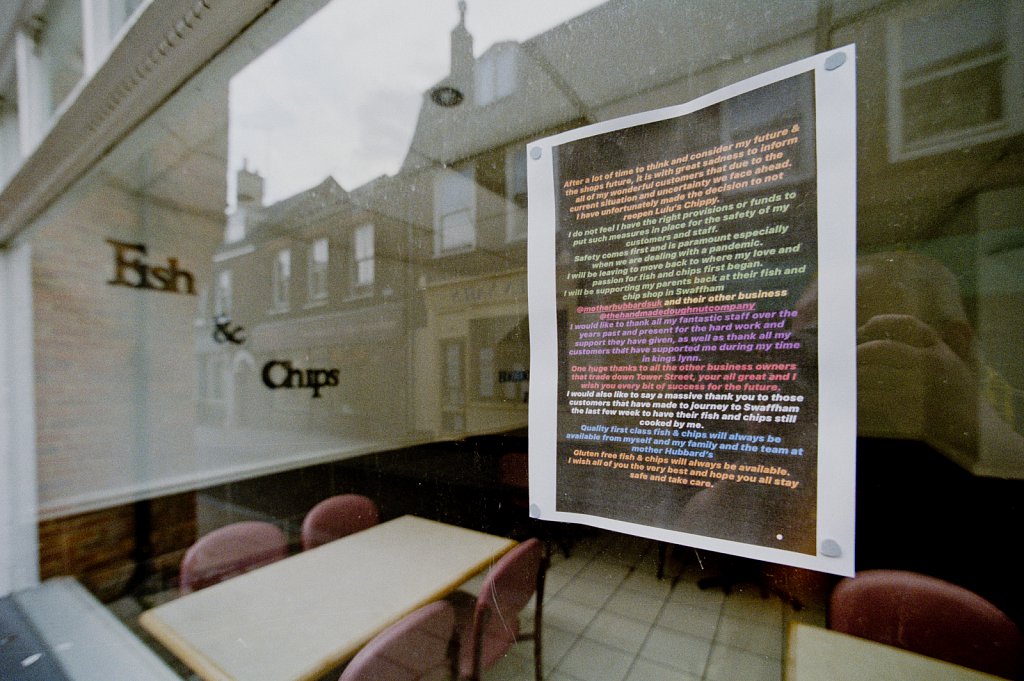 Fish
&
Chips
After a lot of time to think and consider my future &
the shops future, it is with great sadness to inform
all of my wonderful customers that due to the
current situation and uncertainty we face ahead.
I have unfortunately made the decision to not
reopen Lulu's Chippy.
I do not feel I have the right provisions or funds to
put such measures in place for the safety of my
customers and staff.
Safety comes first and is paramount especially
when we are dealing with a pandemic.
I will be leaving to move back to where my love and
passion for fish and chips first began.
I will be supporting my parents back at their fish and
chip shop in Swaffham
@motherhubbardsuk and their other business
@thehandmadedoughnutcompany
I would like to thank all my fantastic staff over the
years past and present for the hard work and
support they have given, as well as thank all my
customers that have supported me during my time
in kings lynn.
One huge thanks to all the other business owners
that trade down Tower Street, your all great and I
wish you every bit of success for the future.
I would also like to say a massive thank you to those
customers that have made to journey to Swaffham
the last few week to have their fish and chips still
cooked by me.
Quality first class fish & chips will always be
available from myself and my family and the team at
mother Hubbard's
Gluten free fish & chips will always be available.
I wish all of you the very best and hope you all stay
safe and take care.